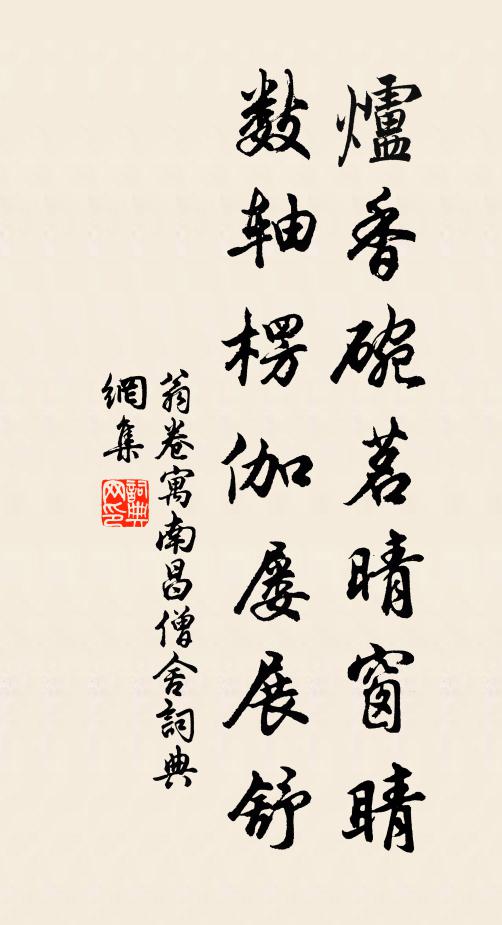 爐香碗茗晴窗晴
数軸楞伽屢展舒
翁卷寓南昌僧舍詞典
網集
詞典
网印